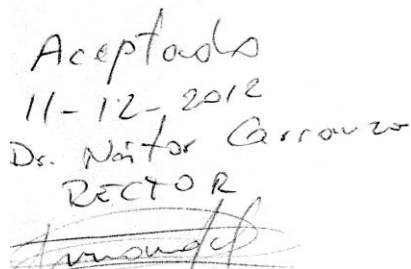 Aceptado
11-12-2012
Dr. Néstor Carranza
RECTOR